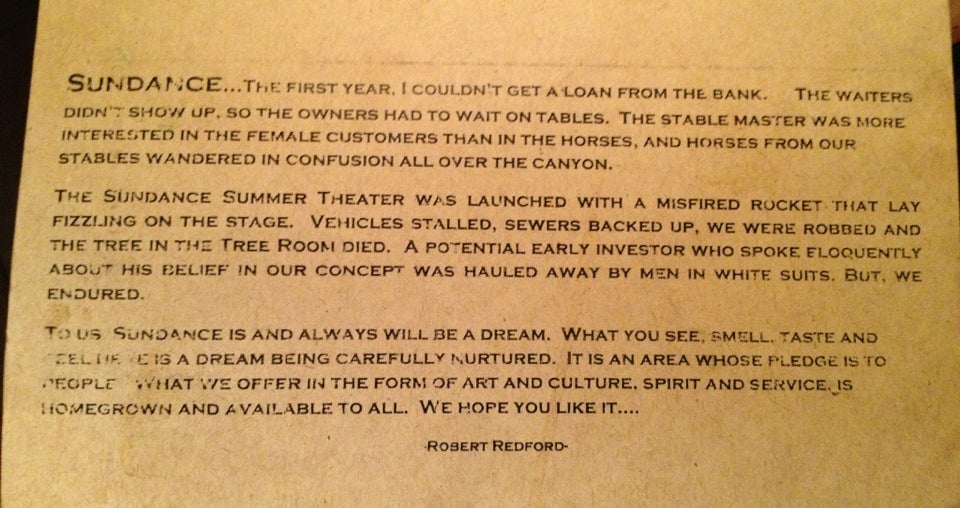 SUNDANCE...THE FIRST YEAR, I COULDN'T GET A LOAN FROM THE BANK. THE WAITERS
DIDN'T SHOW UP, SO THE OWNERS HAD TO WAIT ON TABLES. THE STABLE MASTER WAS MORE
INTERESTED IN THE FEMALE CUSTOMERS THAN IN THE HORSES, AND HORSES FROM OUR
STABLES WANDERED IN CONFUSION ALL OVER THE CANYON.
THE SUNDANCE SUMMER THEATER WAS LAUNCHED WITH A MISFIRED ROCKET THAT LAY
FIZZLING ON THE STAGE. VEHICLES STALLED, SEWERS BACKED UP, WE WERE ROBBED AND
THE TREE IN THE TREE ROOM DIED. A POTENTIAL EARLY INVESTOR WHO SPOKE ELOQUENTLY
ABOUT HIS BELIEF IN OUR CONCEPT WAS HAULED AWAY BY MEN IN WHITE SUITS. BUT, WE
ENDURED.
TO US SUNDANCE IS AND ALWAYS WILL BE A DREAM. WHAT YOU SEE, SMELL, TASTE AND
FEEL HERE IS A DREAM BEING CAREFULLY NURTURED. IT IS AN AREA WHOSE PLEDGE IS TO
PEOPLE WHAT WE OFFER IN THE FORM OF ART AND CULTURE, SPIRIT AND SERVICE, IS
HOMEGROWN AND AVAILABLE TO ALL. WE HOPE YOU LIKE IT....
-ROBERT REDFORD-